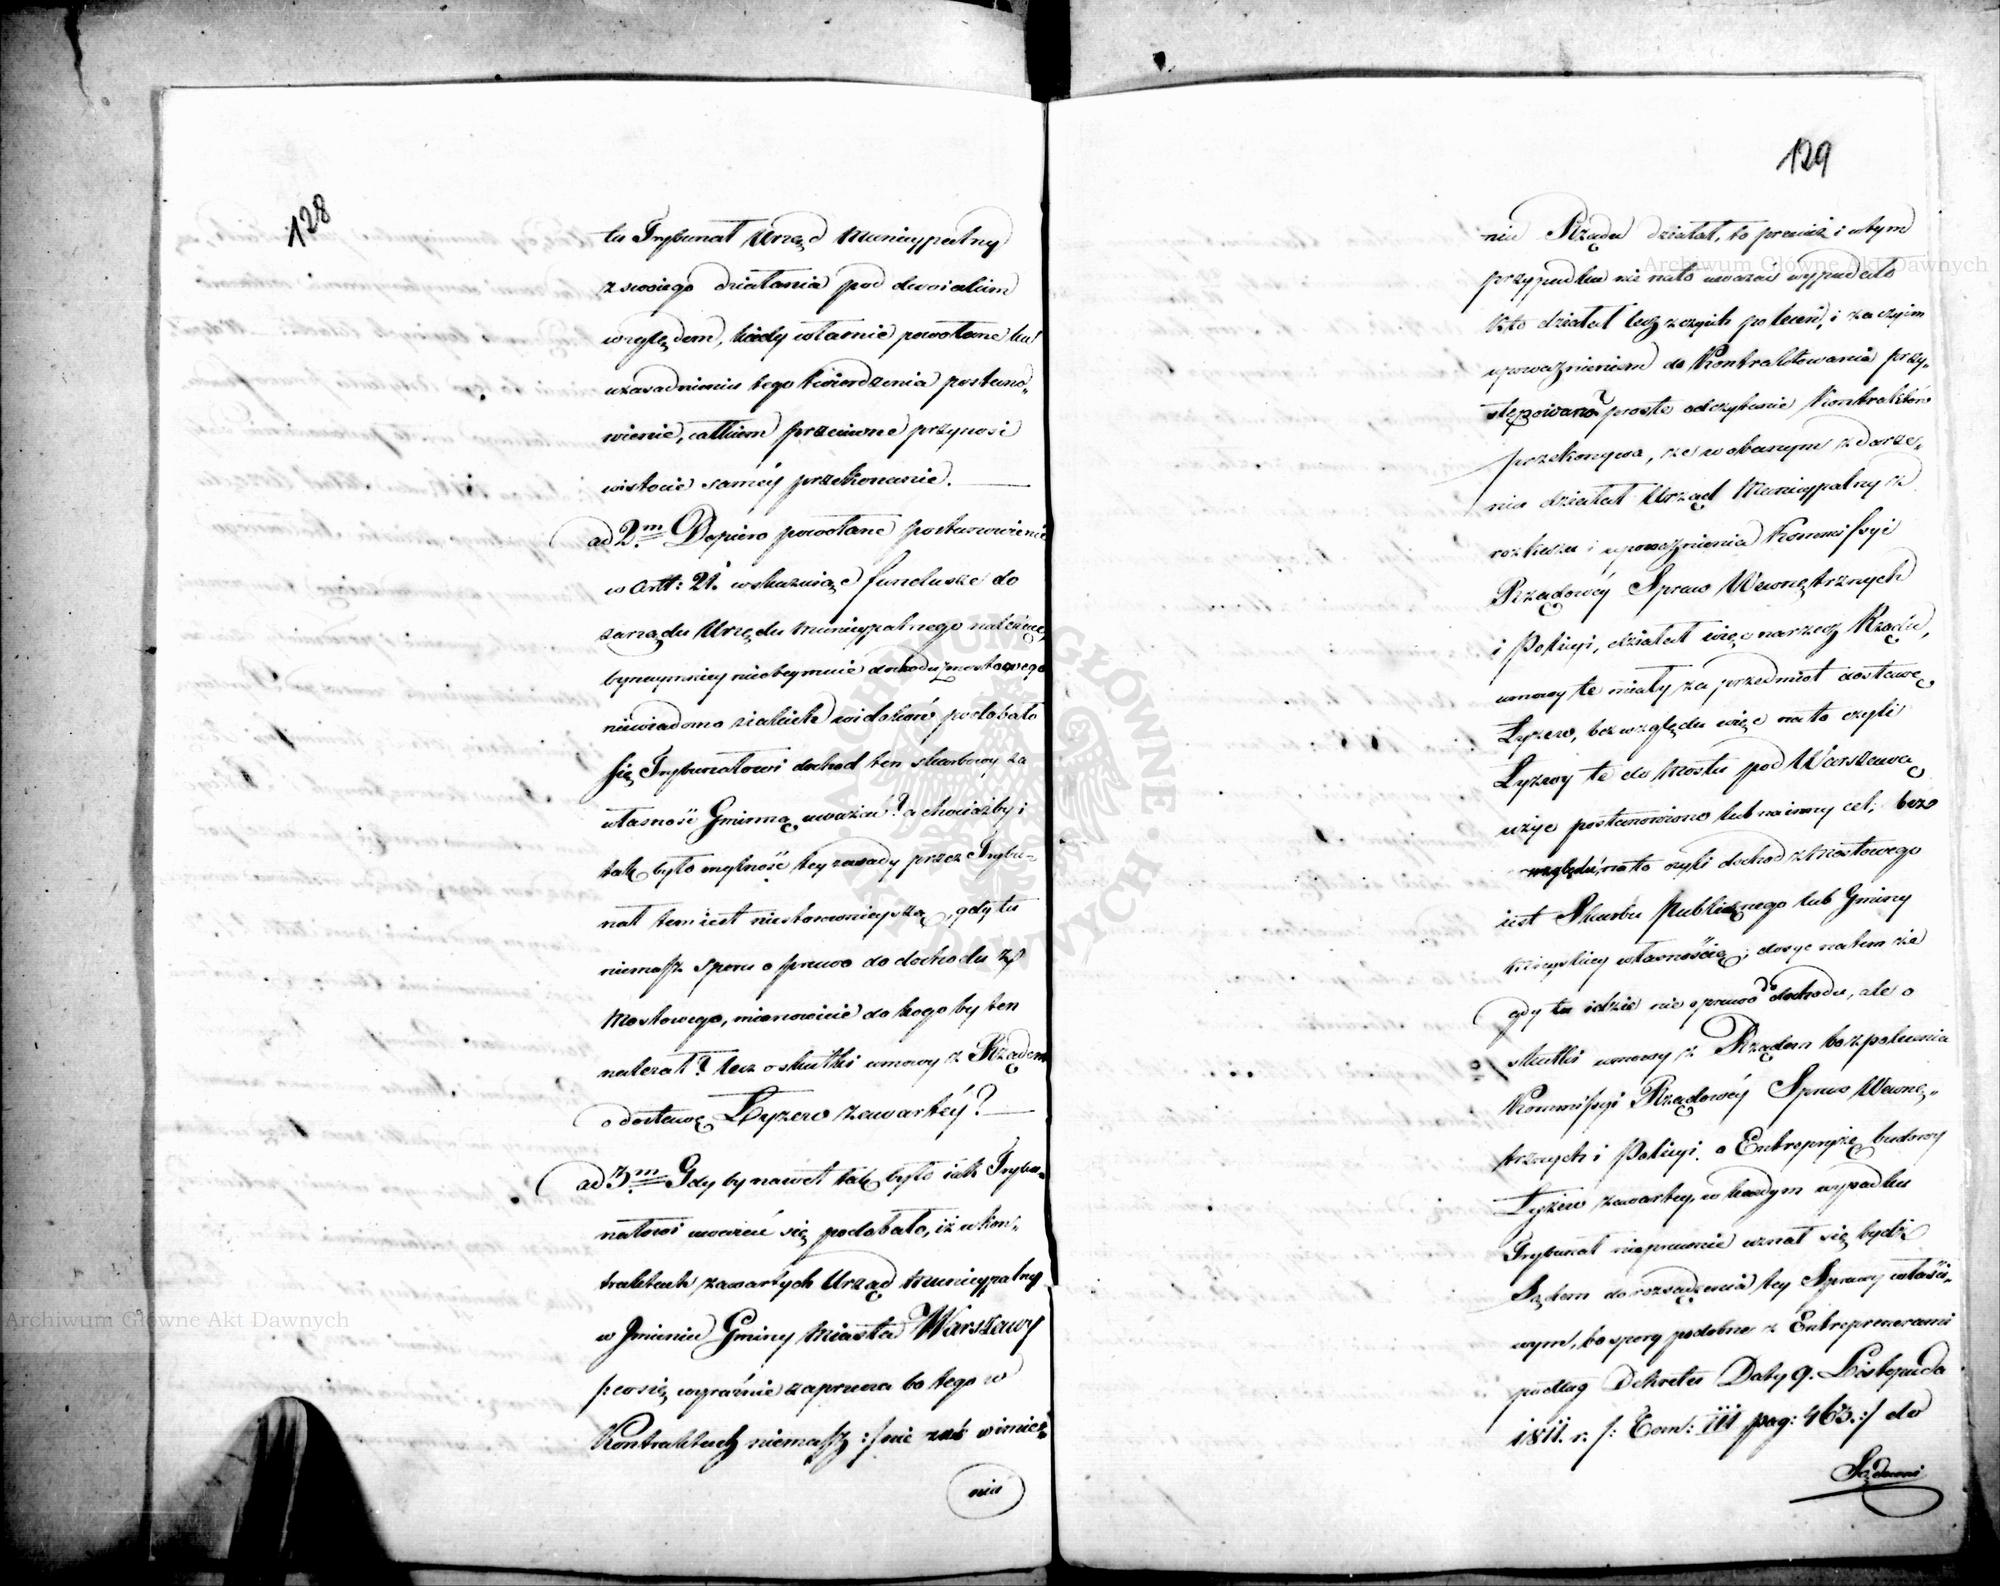 128
tu Trybunał Urząd Municypalny
z swoiego działania pod dwoiakim
względem, kiedy właśnie powołane ku
uzasadnieniu tego twierdzenia postano„
wienie, całkiem przeciwne przynosi
w istocie saméy przekonanie.
ad 2.m Dopiero powołane postanowienie
w Artt: 21. wskazuiąc fundusze do
zarządu Urzędu Municypalnego należące,
bynaymniey nieobeymuie dochodu mostowego
niewiadomo z iakich widoków podobało
się Trybunałowi dochod ten skarbowy za
własność Gminną uważać? a chociażby i
tak było mylność tey zasady przez Trybu-
nał tem iest niestosownieyszą, gdy tu
niemasz sporu o prawo do dochodu z
Mostowego, mianowicie do kogo by ten
należał? lecz o skutki umowy z Rządem
o dostawę Łyżew zawartéy?
ad 3.m Gdyby nawet tak było iak Trybu„
nałowi uważać się podobało, iż w Kon„
traktach zawartych Urząd Municypalny
w Jmieniu Gminy Miasta Warszawy
/:co się wyraźnie zaprzecza bo tego w
Kontraktach niemasz:/ nie zaś w imie„
niu
129
niu Rządu działał, to przecież i w tym
przypadku nie na to uważać wypadało
kto działał lecz z czyich poleceń, i za czyim
upoważnieniem do Kontraktowania przy„
stępowano? proste odczytanie Kontraktów
przekonywa, że w obecnym zdarze„
niu działał Urząd Municypalny z
rozkazu i upoważnienia Kommissyi
Rządowéy Spraw Wewnętrznych
i Policyi, działał więc na rzecz Rządu,
umowy te miały za przedmiot dostawę
Łyżew, bez względu więc na to czyli
Łyżwy te do Mostu pod Warszawą
użyć postanowiono lub na inny cel; bez
względu na to czyli dochod z Mostowego
iest Skarbu Publicznego lub Gminy
Mieyskiey własnością; dosyć na tem że
gdy tu idzie nie o prawo do dochodu, ale o
skutki umowy z Rządem bo z polecenia
Kommissyi Rządowéy Spraw Wewnę„
trznych i Policyi o Entrepryzę budowy
Łyżew zawartey, w każdym wypadku
Trybunał nieprawnie uznał się bydź
Sądem do rozsądzenia tey Sprawy właści„
wym, bo spory podobne z Entreprenerami
podług Dekretu Daty 9. Listopada
1811. r. /: Tom: III pag: 463.:/ do
Sądowni
Archiwum Główne Akt Dawnych
Archiwum Główne Akt Dawnych
ARCHIWUM GŁÓWNE AKT DAWNYCH